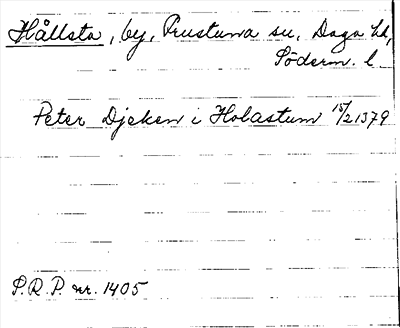 Hållsta, by, Prustuna sn, Daga hd,
Söderm. l.
Peter Djeken i Holastum 15/2 1379
S.R.P. nr. 1405